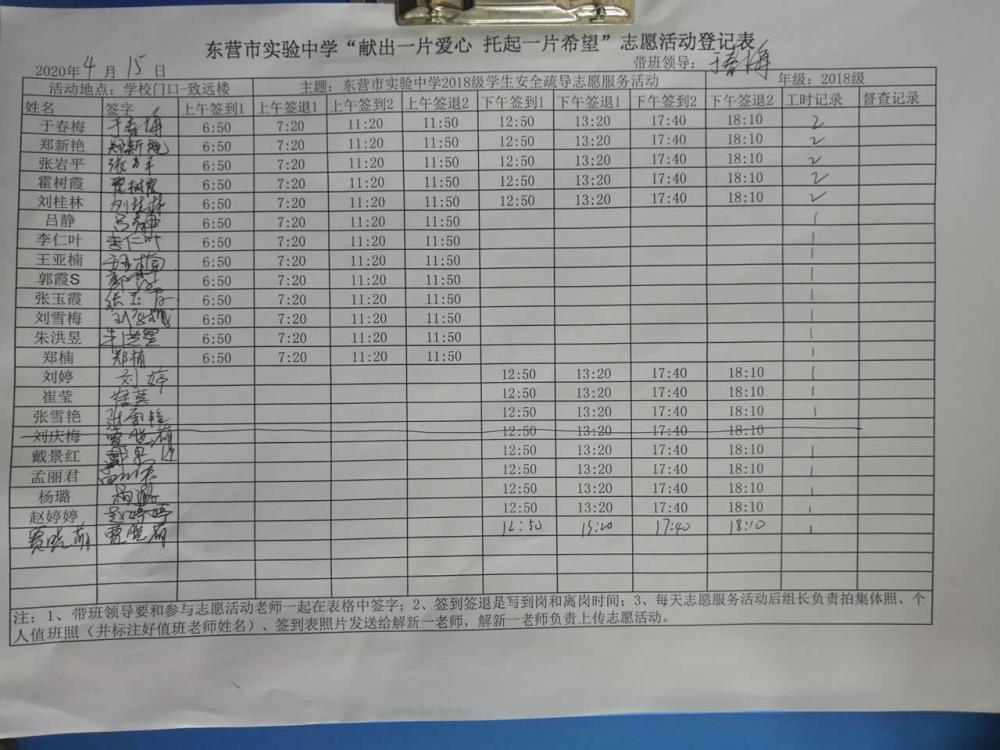 东营市实验中学“献出一片爱心 托起一片希望”志愿活动登记表
2020年4月15日 带班领导：于春梅
活动地点：学校门口—致远楼 主题：东营市实验中学2018级学生安全疏导志愿服务活动 年级：2018级
姓名 签字 上午签到1 上午签退1 上午签到2 上午签退2 下午签到1 下午签退1 下午签到2 下午签退2 工时记录 督查记录
于春梅 于春梅 6:50 7:20 11:20 11:50 12:50 13:20 17:40 18:10 2
郑新艳 郑新艳 6:50 7:20 11:20 11:50 12:50 13:20 17:40 18:10 2
张岩平 张岩平 6:50 7:20 11:20 11:50 12:50 13:20 17:40 18:10 2
霍树霞 霍树霞 6:50 7:20 11:20 11:50 12:50 13:20 17:40 18:10 2
刘桂林 刘桂林 6:50 7:20 11:20 11:50 12:50 13:20 17:40 18:10 2
吕静 吕静 6:50 7:20 11:20 11:50 1
李仁叶 李仁叶 6:50 7:20 11:20 11:50 1
王亚楠 王亚楠 6:50 7:20 11:20 11:50 1
郭霞S 郭霞 6:50 7:20 11:20 11:50 1
张玉霞 张玉霞 6:50 7:20 11:20 11:50 1
刘雪梅 刘雪梅 6:50 7:20 11:20 11:50 1
朱洪昱 朱洪昱 6:50 7:20 11:20 11:50 1
郑楠 郑楠 6:50 7:20 11:20 11:50 1
刘婷 刘婷 12:50 13:20 17:40 18:10 1
崔莹 崔莹 12:50 13:20 17:40 18:10 1
张雪艳 张雪艳 12:50 13:20 17:40 18:10 1
刘庆梅 贾晓萌 12:50 13:20 17:40 18:10
戴景红 12:50 13:20 17:40 18:10 1
孟丽君 12:50 13:20 17:40 18:10 1
杨璐 杨璐 12:50 13:20 17:40 18:10 1
赵婷婷 赵婷婷 12:50 13:20 17:40 18:10 1
贾晓萌 贾晓萌 12:50 13:20 17:40 18:10 1
注：1、带班领导要和参与志愿活动老师一起在表格中签字；2、签到签退是写到岗和离岗时间；3、每天志愿服务活动后组长负责拍集体照、个
人值班照（并标注好值班老师姓名）、签到表照片发送给解新一老师，解新一老师负责上传志愿活动。